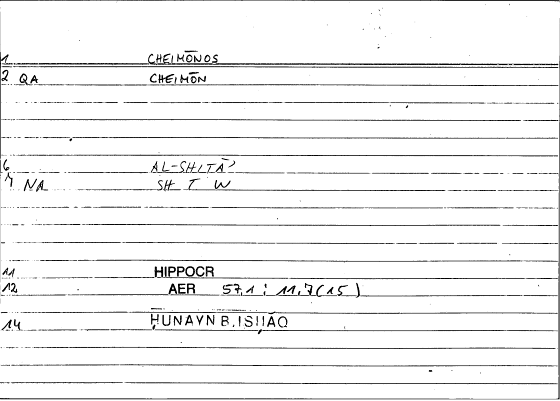 1 CHEIMŌNOS
2 QA CHEIMŌN
6 AL-SHITĀʾ
7 NA SH T W
11 HIPPOCR
12 AER 57,1 : 11.7(15)
14 ḤUNAYN B.ISḤĀQ